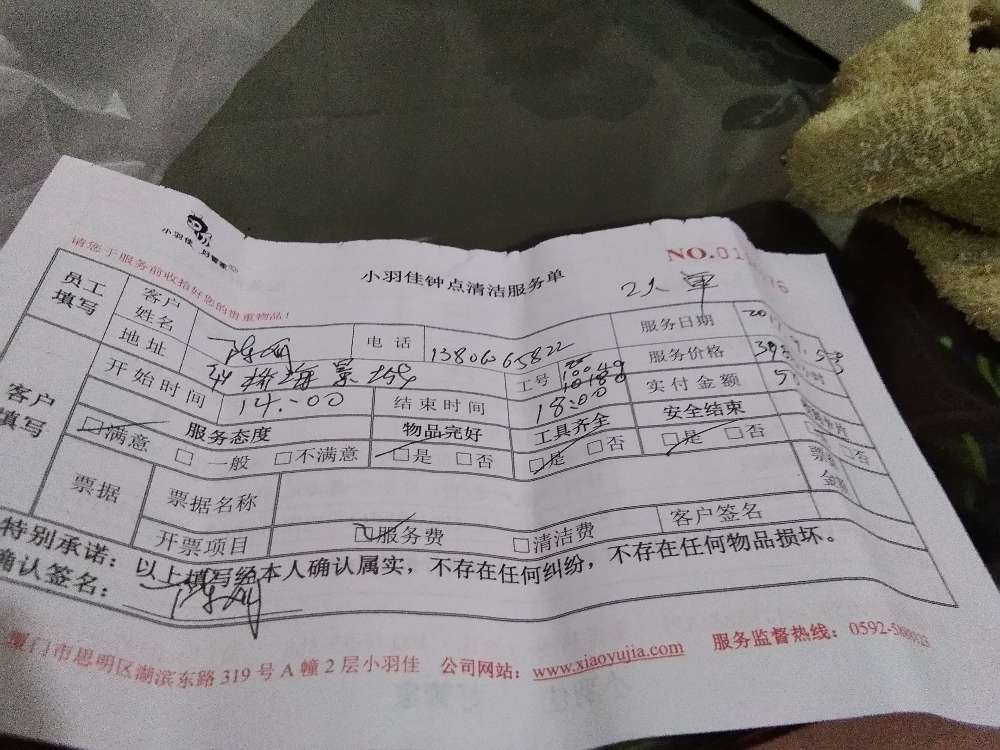 小羽佳 好管家
请您于服务前收拾好您的贵重物品！
小羽佳钟点清洁服务单
NO.01
2人单
员工填写 客户姓名 电话 13806065822 服务日期
地址 工号 服务价格
客户填写 开始时间 14:00 结束时间 18:00 实付金额
服务态度 物品完好 工具齐全 安全结束
□满意 □一般 □不满意 □是 □否 □是 □否 □是 □否 □否
票据 票据名称 票据金额
开票项目 □服务费 □清洁费 客户签名
特别承诺：以上填写经本人确认属实，不存在任何纠纷，不存在任何物品损坏。
确认签名：
厦门市思明区湖滨东路319号A幢2层小羽佳 公司网站：www.xiaoyujia.com 服务监督热线：0592-5